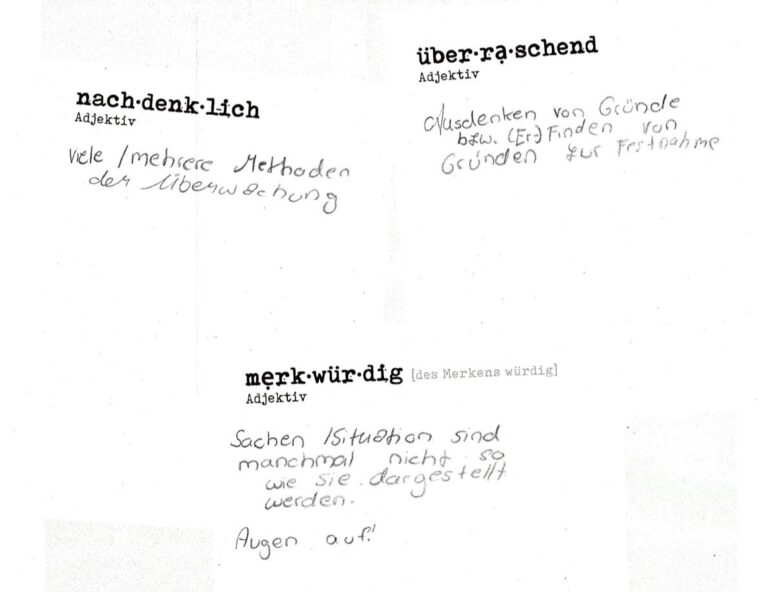 nach·denk·lich
Adjektiv
Viele / mehrere Methoden
der Überwachung
über·rạ·schend
Adjektiv
Ausdenken von Gründe
bzw. (Er-)Finden von
Gründen zur Festnahme
mẹrk·wür·dig [des Merkens würdig]
Adjektiv
Sachen /Situation sind
manchmal nicht so
wie sie dargestellt
werden.
Augen auf!